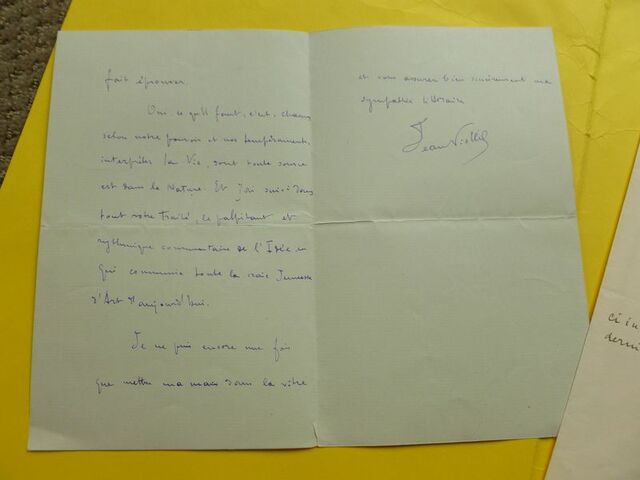 fait éprouver.
Oui, ce qu'il faut, c'est, chacun
selon notre pouvoir et nos tempéraments,
interpréter la Vie, dont toute source
est dans la Nature. Et j'ai suivi dans
tout votre Traité, le palpitant et
rythmique commentaire de l'Idée en
qui communie toute la vraie Jeunesse
d'Art d'aujourd'hui.
Je ne puis encore une fois
que mettre ma main dans la vôtre
et vous assurer bien sincèrement ma
sympathie littéraire
Jean Viollis
ci
derni